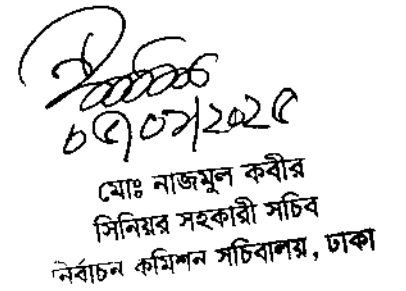 মোঃ নাজমুল কবীর
সিনিয়র সহকারী সচিব
নির্বাচন কমিশন সচিবালয়, ঢাকা